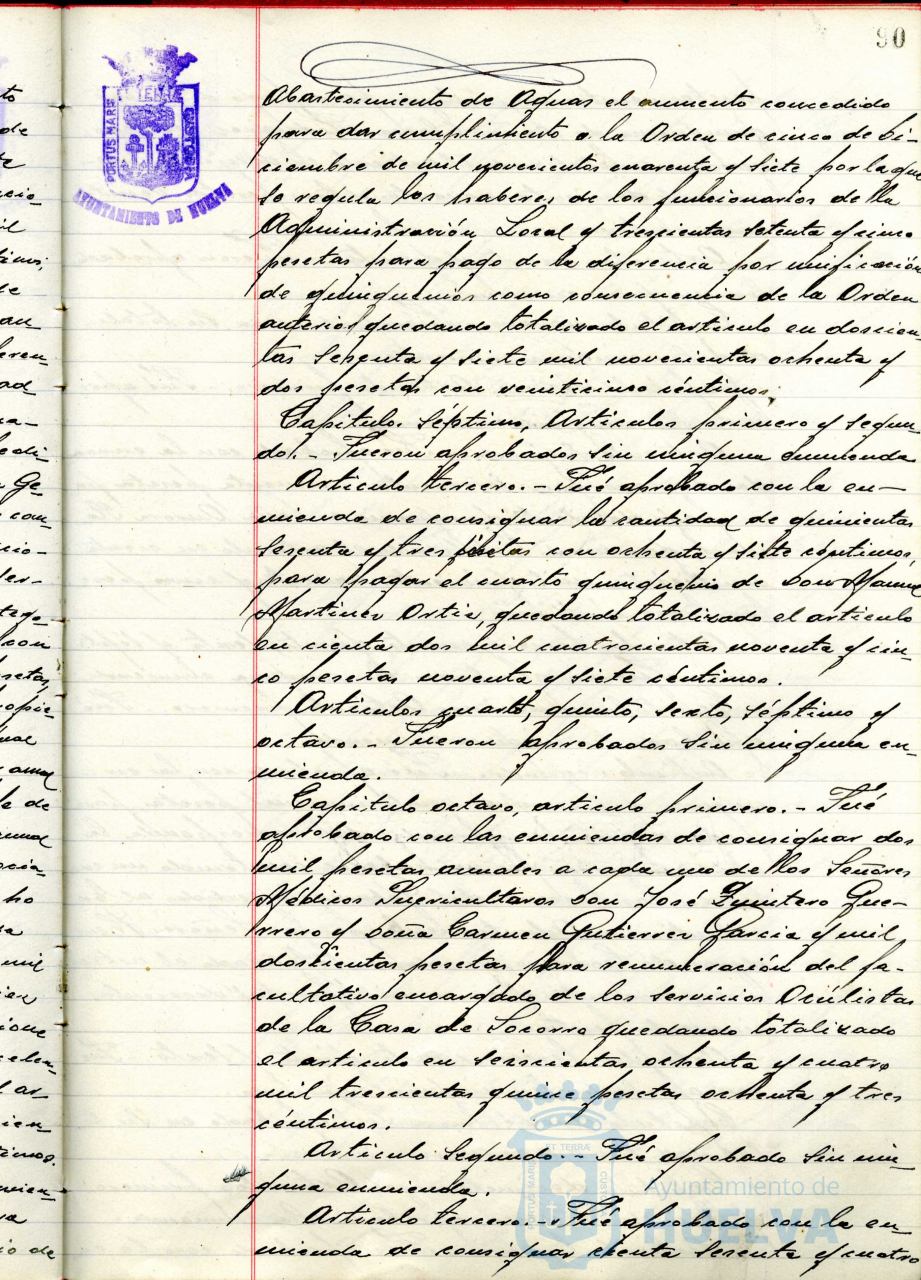 90
PORTUS MARIS ET TERRAE CUSTODIA
AYUNTAMIENTO DE HUELVA
Abastecimiento de Aguas el aumento concedido
para dar cumplimiento a la Orden de cinco de Di-
ciembre de mil novecientos cuarenta y siete por la que
se regula los haberes de los funcionarios de la
Administración Local y trescientas setenta y cinco
pesetas para pago de la diferencia por unificación
de quinquenios como consecuencia de la Orden
anterior quedando totalizado el articulo en doscien-
tas sesenta y siete mil novecientas ochenta y
dos pesetas con veinticinco céntimos.
Capitulo. Séptimo, Articulos primero y segun-
do. - Fueron aprobados sin ninguna enmienda
Articulo tercero. - Fué aprobado con la en-
mienda de consignar la cantidad de quinientas
sesenta y tres pesetas con ochenta y siete céntimos
para pagar el cuarto quinquenio de Don Manuel
Martinez Ortiz, quedando totalizado el articulo
en cienta dos mil cuatrocientas noventa y cin-
co pesetas noventa y siete céntimos.
Articulos cuarto, quinto, sexto, séptimo y
octavo. - Fueron aprobados sin ninguna en-
mienda.
Capitulo octavo, articulo primero. - Fué
aprobado con las enmiendas de consignar dos
mil pesetas anuales a cada uno de los Señores
Médicos Puericultores Don José Quintero Gue-
rrero y Doña Carmen Gutierrez Garcia y mil
doscientas pesetas para remuneración del fa-
cultativo encargado de los servicios Oculistas
de la Casa de Socorro quedando totalizado
el articulo en seiscientas ochenta y cuatro
mil trescientas quince pesetas ochenta y tres
céntimos.
Articulo segundo. - Fué aprobado sin nin-
guna enmienda.
Articulo tercero. - Fué aprobado con la en-
mienda de consignar cienta sesenta y cuatro
Ayuntamiento de
HUELVA